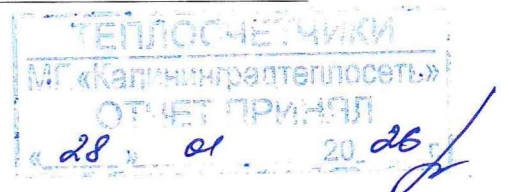 ТЕПЛОСЧЕТЧИКИ
МП «Калининградтеплосеть»
ОТЧЕТ ПРИНЯЛ
« 28 » 01 20 26 г.